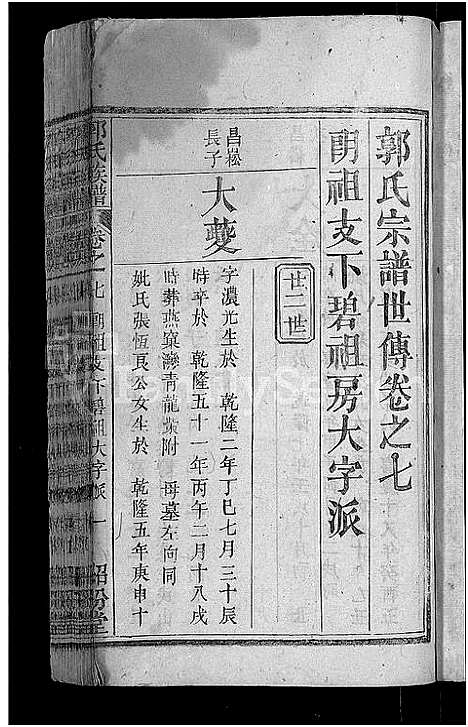 郭氏宗譜世傳卷之七
朗祖支下碧祖房大字派
廿二世
昌崧長子
大夔
字濃光生於 乾隆二年丁巳七月三十辰
時卒於 乾隆五十一年丙午二月十八戌
時葬燕窠灣青龍 附 母墓左向同
妣氏張恆良公女生於 乾隆五年庚申十
郭氏族譜 卷之七 朗祖支下碧祖大字派 一